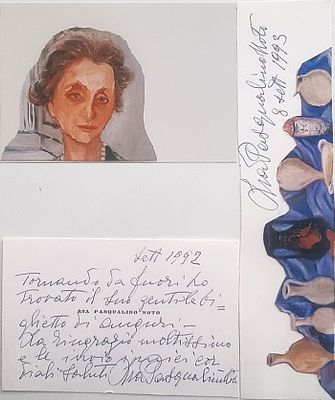 Lia Pasqualino Noto
8 sett 1993
sett 1992
Tornando da fuori ho
trovato il suo gentile bi=
LIA PASQUALINO NOTO
glietto di auguri -
La ringrazio moltissimo
e le invio i miei cor
diali saluti Lia Pasqualino Noto